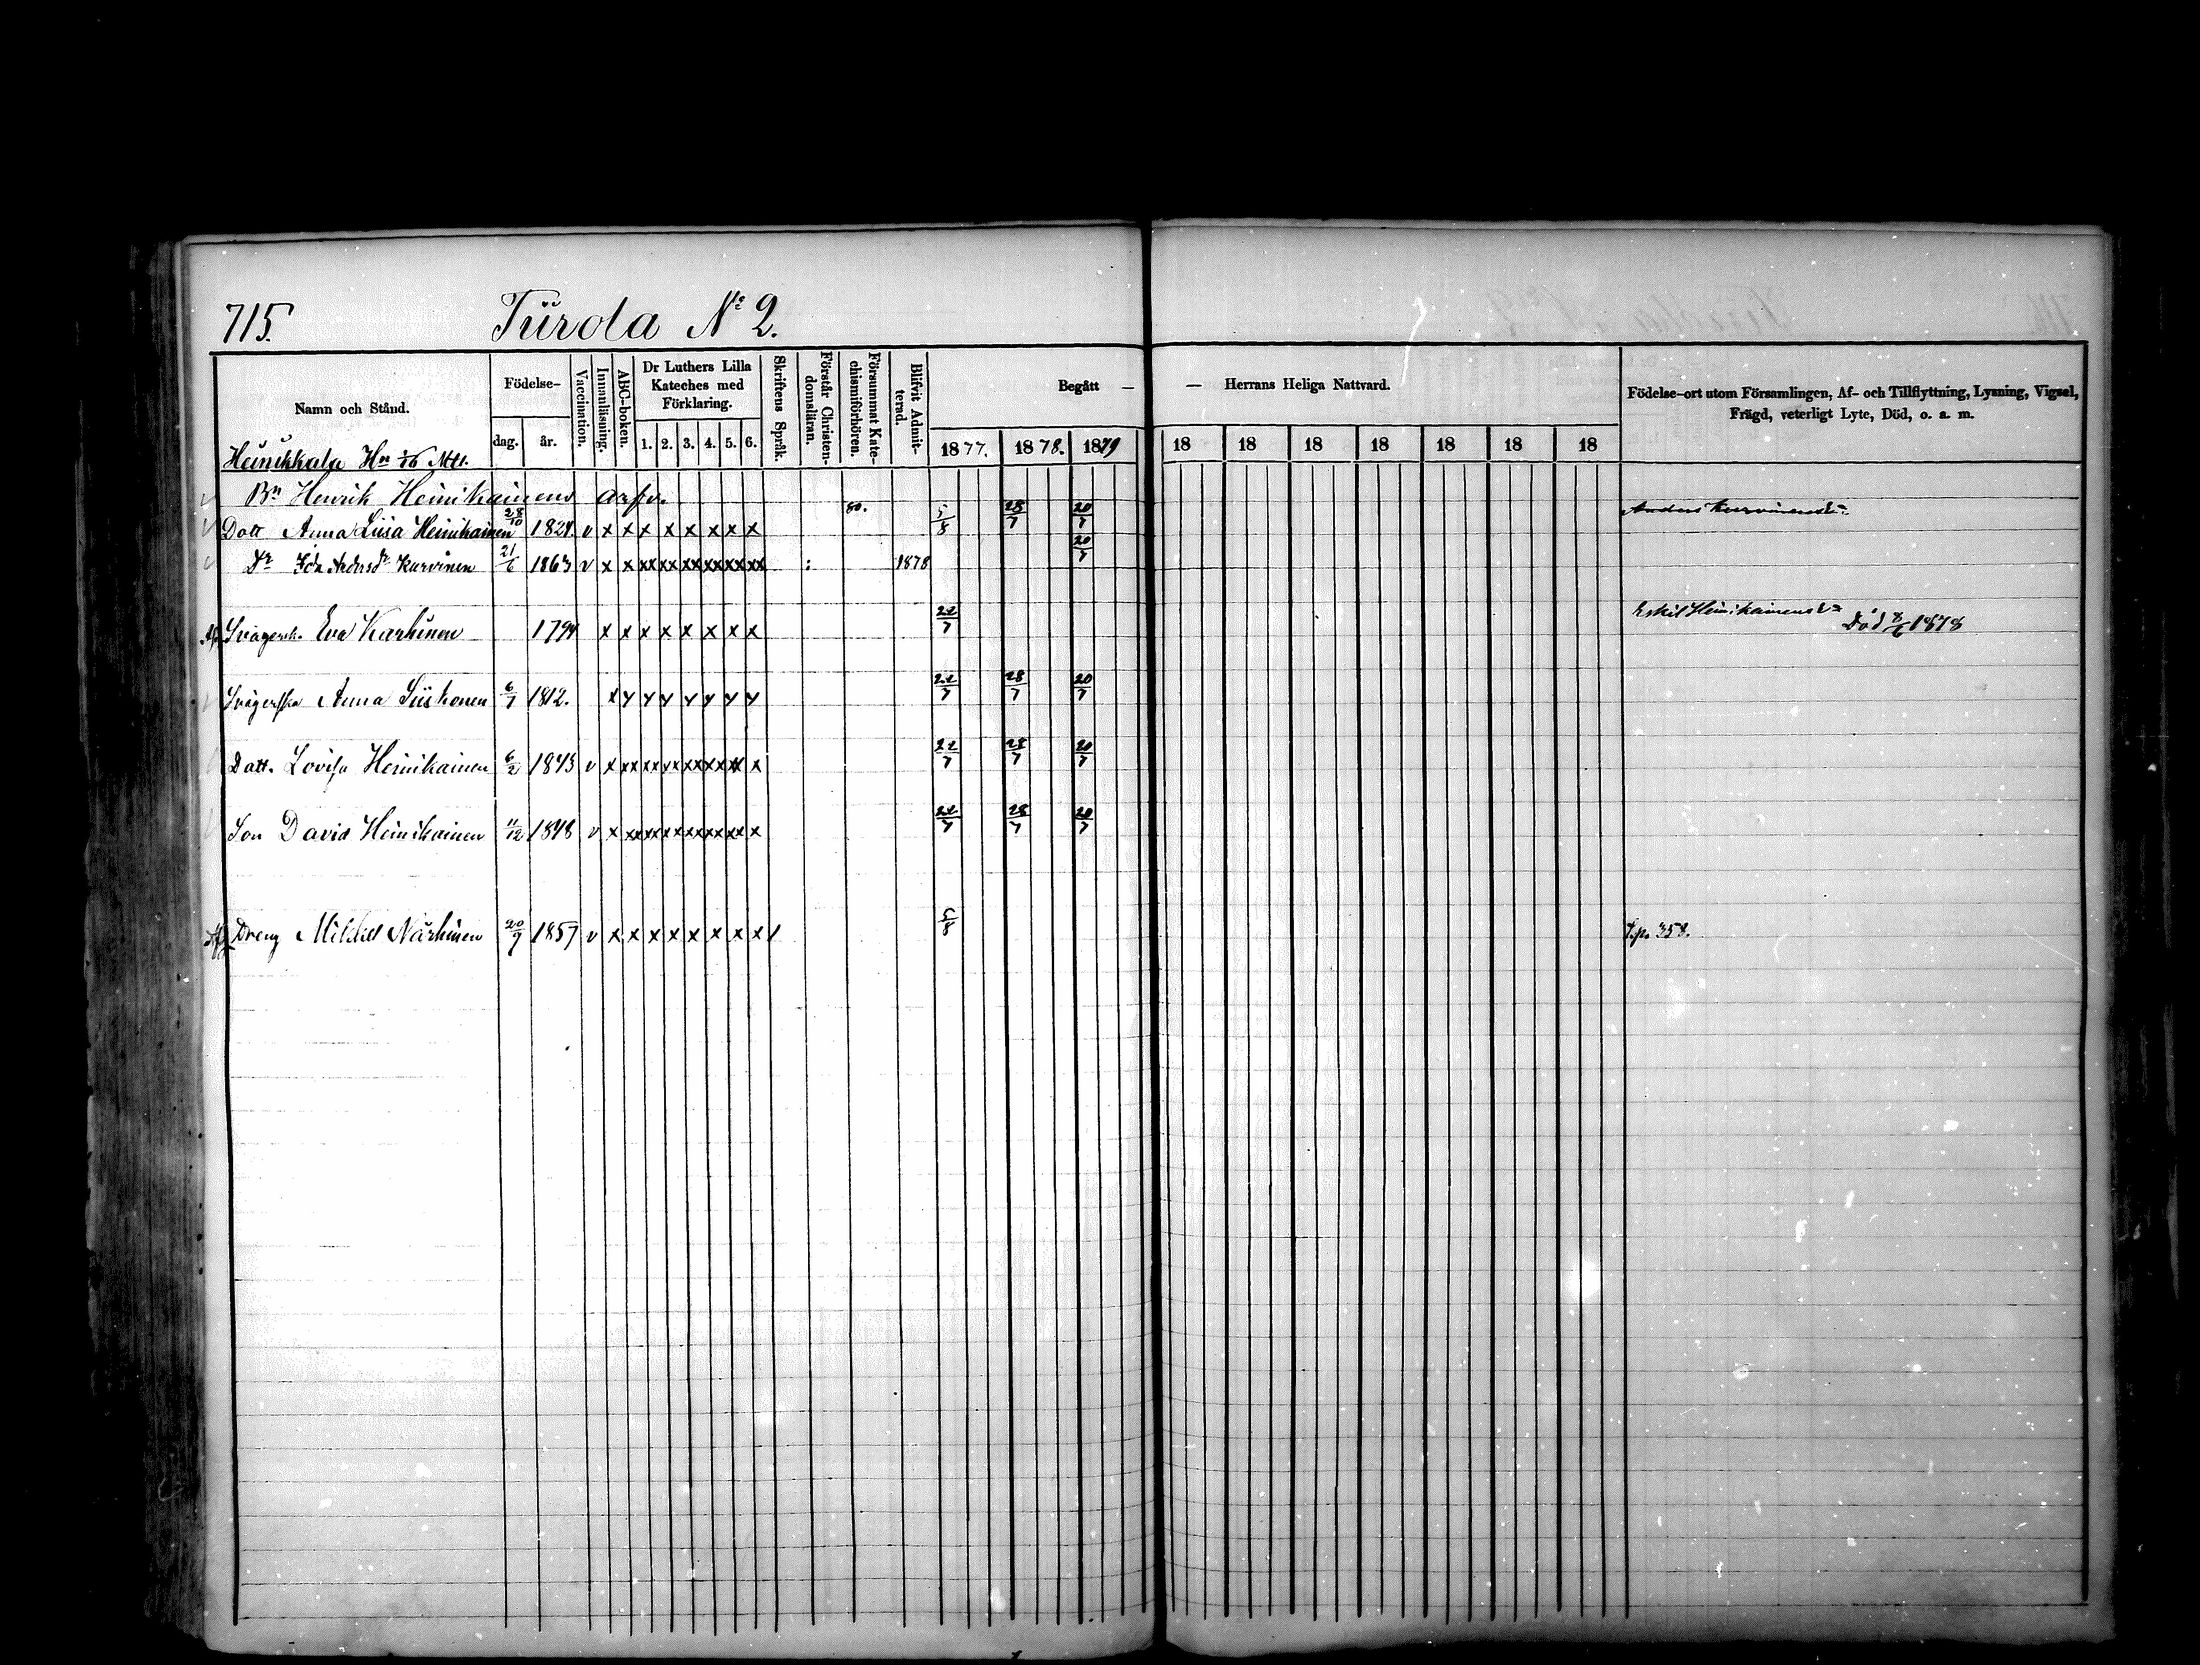 715.
Tiirola № 2.
Namn och Stånd.
Födelse-
dag.
år.
Vaccination.
Innanläsning.
ABC-boken.
Dr Luthers Lilla
Kateches med
Förklaring.
1. 2. 3. 4. 5. 6.
Skriftens Språk.
Förstår Christen-
domsläran.
Försummat Kate-
chismiförhören.
Blifvit Admit-
terad.
Begått — — Herrans Heliga Nattvard.
1877. 1878. 1879 18 18 18 18 18 18 18
Födelse-ort utom Församlingen, Af- och Tillflyttning, Lysning, Vigsel,
Frägd, veterligt Lyte, Död, o. a. m.
Heinikkala Hn 1/16 Mtl.
Bn Henrik Heinikainens arfv.
Dott Anna Liisa Heinikainen 28/10 1824. v x x x x x x x x 80. 5/8 28/7 20/7 Anders Kurvinens
Dr Ida Andersdr Kurvinen 21/6 1863 v x x xx xx xx xx xx xx : 1878 20/7
Svägersk. Eva Karhinen 1794 x x x x x x x x 22/7 Eskil Heinikainens Död 8/6 1878
Svägerska Anna Siiskonen 6/7 1812. x y y y y y y y 22/7 28/7 20/7
Dott. Lovisa Heinikainen 6/2 1845 v x xx xx xx xx xx xx x 22/7 28/7 20/7
Son David Heinikainen 11/12 1848 v x xx xx xx xx xx xx x 22/7 28/7 20/7
Dreng Mikkel Närhinen 20/7 1857 v x x x x x x x x / 5/8 T.p. 358.